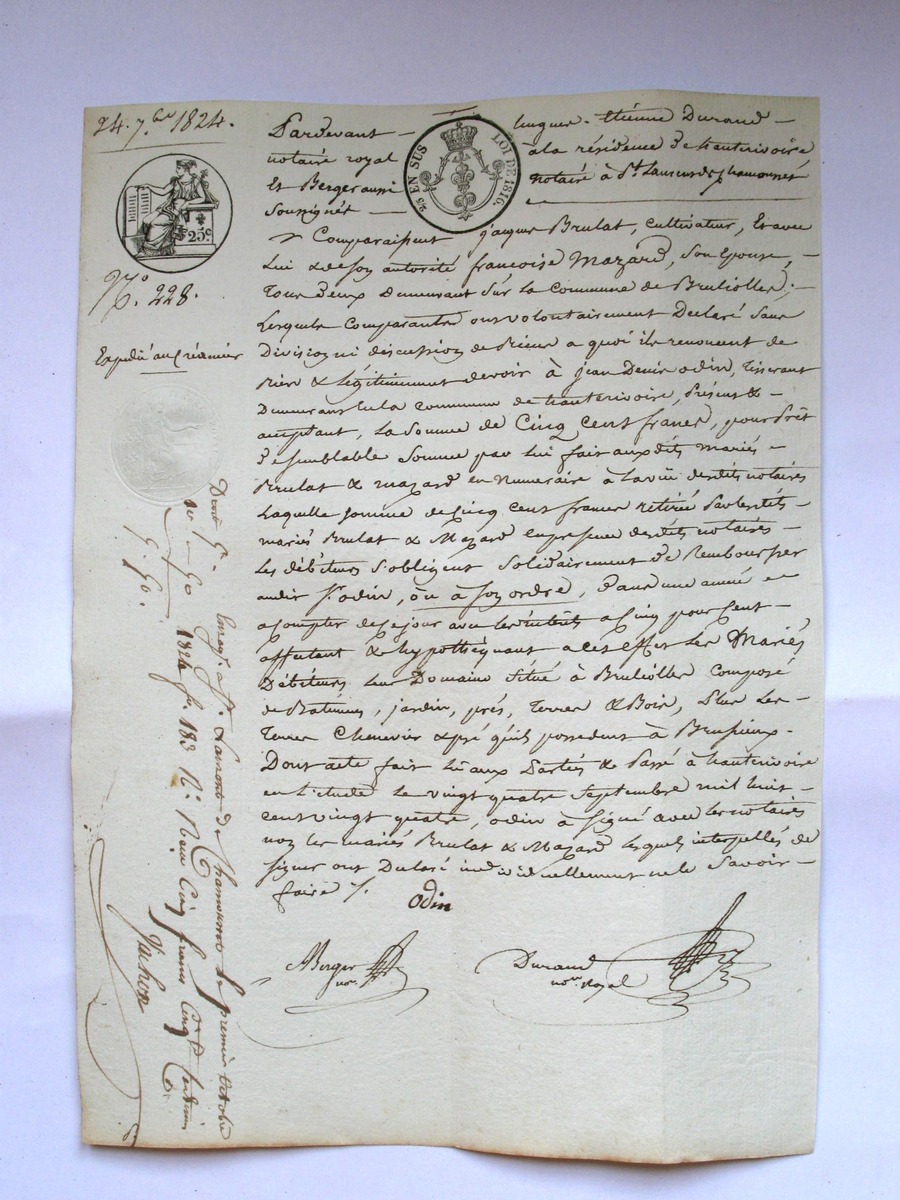 24. 7.bre 1824.
25c.
N.o 228.
Expedié au Créancier
25 EN SUS
LOI DE 1816.
Pardevant Etienne Durand
notaire royal à la résidence d'hauterivoire
Et Berger aussi notaire à St. Laurent de Chamousset
Soussignés
Comparaissent jacques Brulat, cultivateur, Et avec
Lui & de son autorité francoise Mazard, son Epouse,
tous deux demeurant sur la commune de Brulioller,
Lesquels Comparants ont volontairement Déclaré sans
Division ni discussion de biens a quoi ils renoncent
& légitimement devoir à jean Denis odin, tisserant
Demeurant En la commune de hauterivoire, Présent &
acceptant, La Somme de Cinq Cent francs, pour Prêt
de semblable Somme par lui fait aux dits mariés
Brulat & mazard en numeraire à la vüe desdits notaires
Laquelle somme de cinq cent francs retirée par lesdits
mariés Brulat & Mazard en presence desdits notaires
les débiteurs s'obligent solidairement de Rembourser
audit Sr. odin, ou à son ordre, dans une année
a compter de ce jour avec les intérêts a cinq pour Cent
affectant & hypothéquant a cet effet les Mariés
Débiteurs leur Domaine situé à Brulioller Composé
de Batiments, jardin, prés, terres & Bois, Plus les
terres Chenevier & pré qu'ils possedent à Brussieux.
Dont acte fait lû aux Parties & Passé à hauterivoire
en l'étude le vingt quatre Septembre mil huit
cent vingt quatre, odin à signé avec les notaires
non les mariés Brulat & Mazard lesquels interpellés de
signer ont Déclaré individuellement ne le Savoir
faire
odin
Berger nore.
Durand nore. royal
Enreg. a St. Laurent de Chamousset le premier octobre
1824 fo. 183 Ro. Recu Cinq francs Cinqte. Centimes